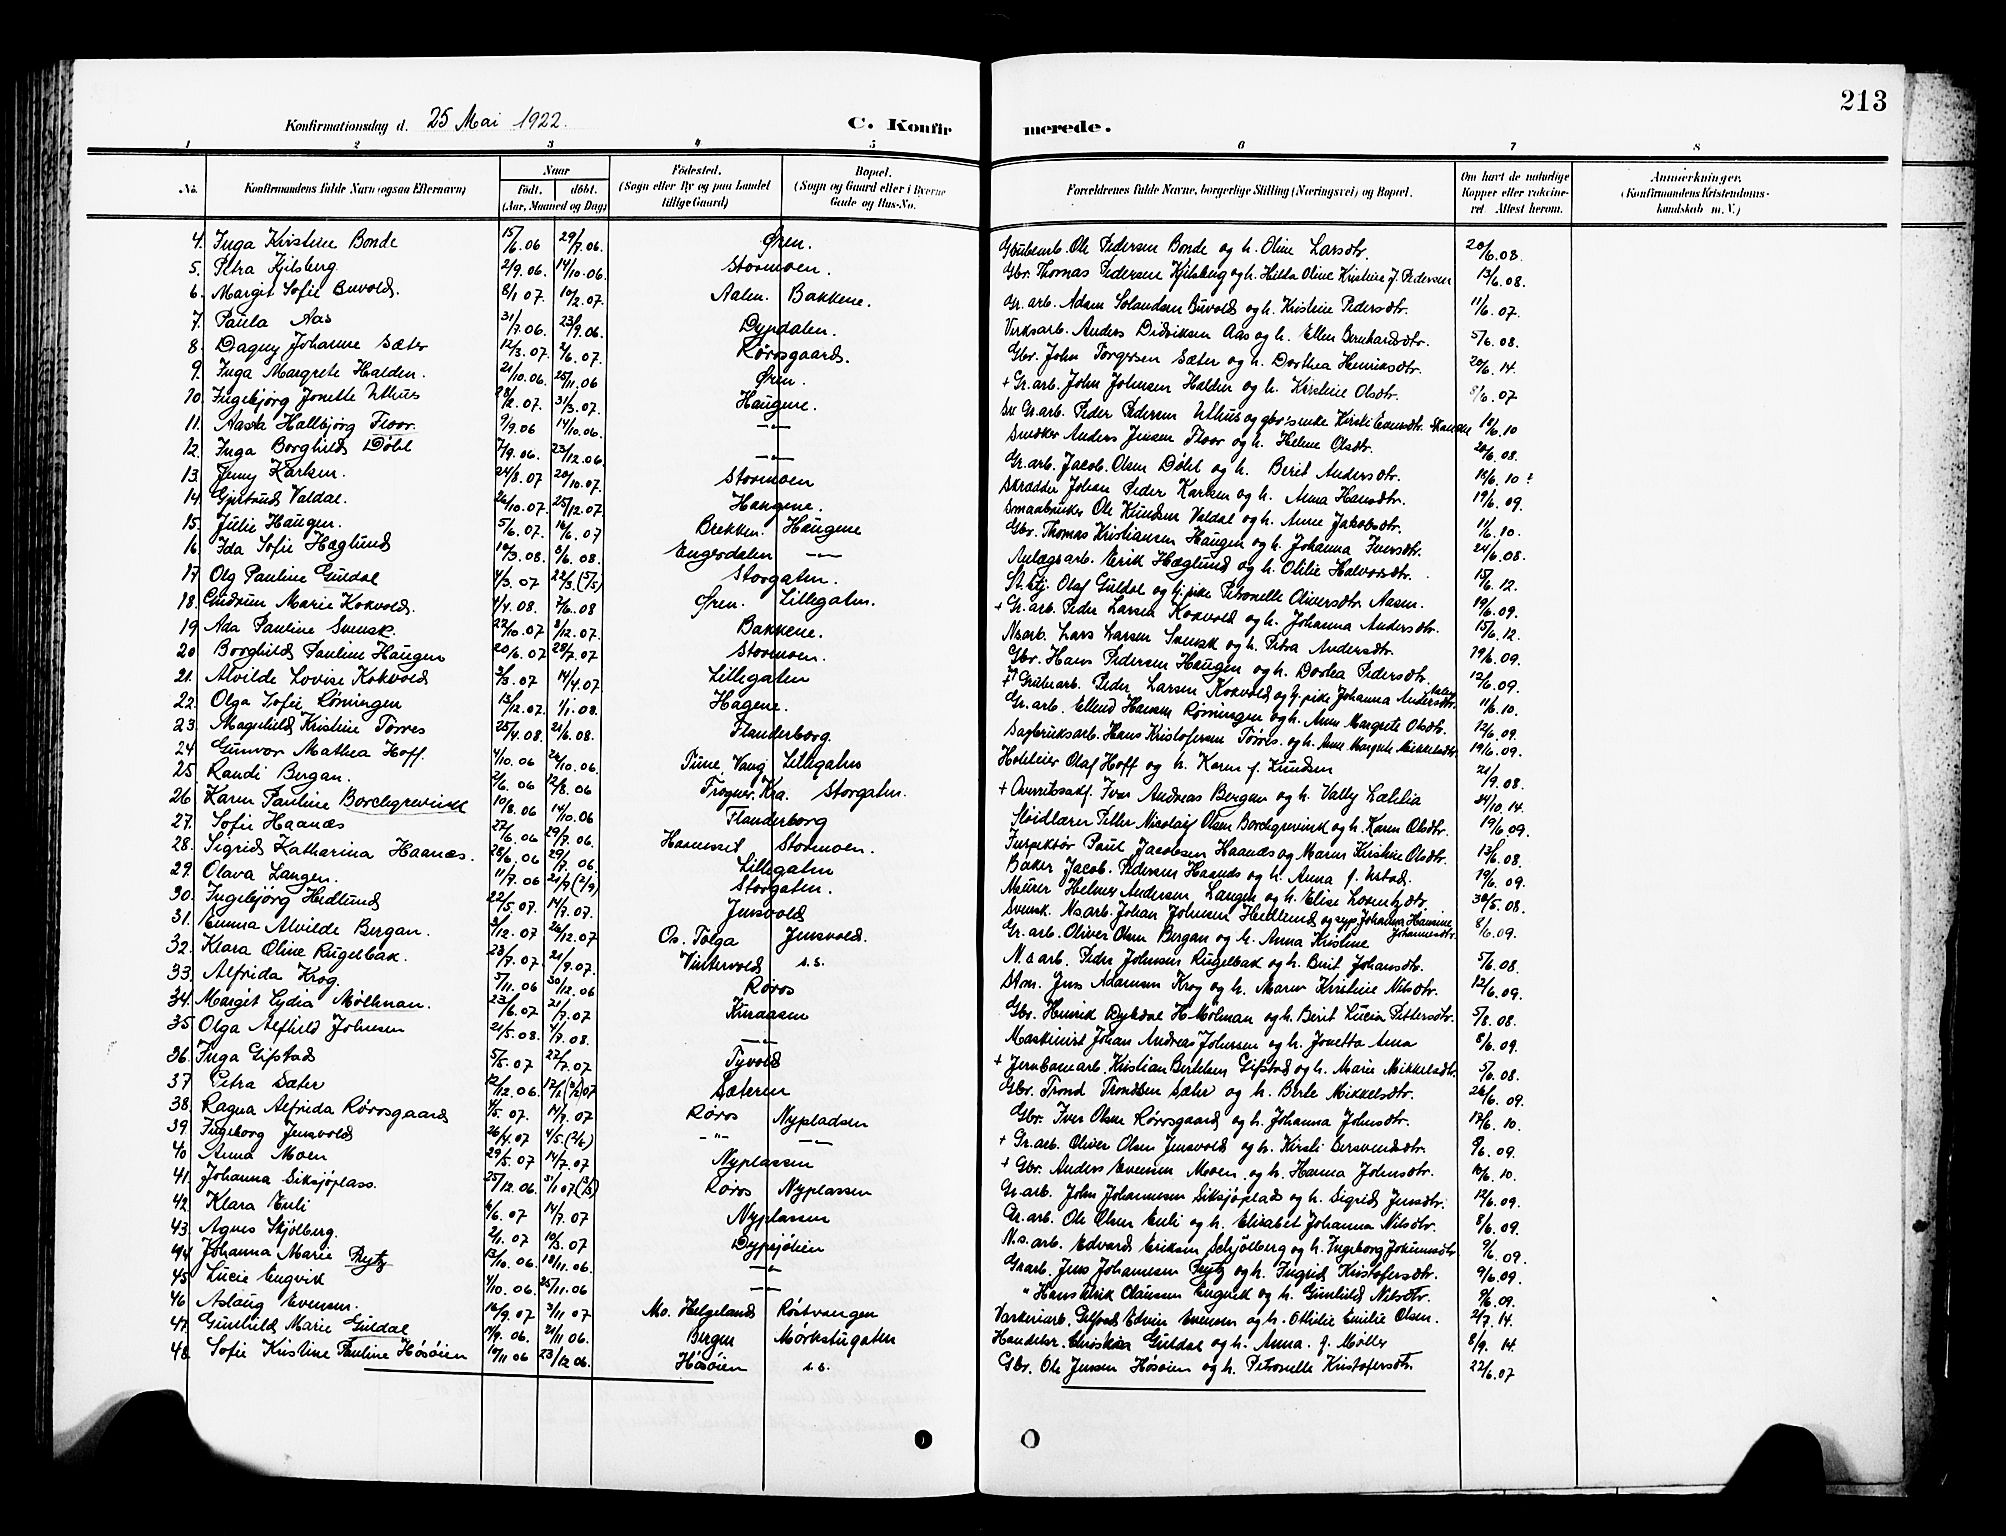 213
Konfirmationsdag d. 25 Mai 1922. C. Konfirmerede.
1 2 3 4 5 6 7 8
No. Konfirmandens fulde Navn (ogsaa Efternavn) Naar født. døbt. (Aar, Maaned og Dag) Fødested. (Sogn eller By og paa Landet tillige Gaard) Bopæl. (Sogn og Gaard eller i Byerne Gade og Hus-No. Forældrenes fulde Navne, borgerlige Stilling (Næringsvei) og Bopæl. Om havt de naturlige Kopper eller vaccineret. Attest herom. Anmerkninger. (Konfirmandens Kristendomskundskab m. V.)
4. Inga Kirstine Bonde 15/6.06 29/7.06. Øren. Grubearb. Ole Pedersen Bonde og h. Oline Larsdtr. 20/6.08.
5. Petra Kjilsberg. 2/9.06. 14/10.06. Stormoen. Gbr. Thomas Pedersen Kjilsberg og h. Hilda Oline Kristine f. Pedersen 13/6.08.
6. Margit Sofie Buvold. 8/1.07. 10/2.07. Aalen. Bakkene. Gr. arb. Adam Buvold og h. Kristine Pedersdtr. 11/6.07.
7. Paula Aas 31/7.06. 23/9.06. Dypdalen. Virksarb. Anders Didriksen Aas og h. Ellen Bernhardsdtr. 5/6.08.
8. Dagny Johanne Sæter 12/3.07. 2/6.07. Rørosgaard. Gbr. John Torgersen Sæter og h. Dorthea Henriksdtr. 20/6.14.
9. Inga Margrete Halden. 21/10.06. 25/11.06 Øren. + Gr. arb. John Johnsen Halden og h. Kirstine Olsdtr. 8/6.07
10. Ingebjørg Jonette Uthus 28/2.07. 31/3.07. Haugene. Gr. arb. Peder Pedersen Uthus og Kirsti Evensdtr. 10/6.10
11. Aasta Hallbjørg Floor. 9/9.06 14/10.06. —"— Snedker Anders Jensen Floor og h. Helene Olsdtr. 20/6.08.
12. Inga Borghild Døhl 7/9.06. 23/12.06. —"— Gr. arb. Jacob Olsen Døhl og h. Berit Andersdtr. 10/6.10
13. Jenny Karlsen. 24/8.07 20/10.07. Stormoen Skrædder Johan Peder Karlsen og h. Anna Hansdtr. 19/6.09.
14. Gjertrud Valdal. 26/10.07. 25/12.07. Haugene. Smaabruker Ole Knudsen Valdal og h. Anne Jakobsdtr. 11/6.10.
15. Julie Haugen. 5/6.07. 16/6.07 Brekken. Haugene Gbr. Thomas Kristiansen Haugen og h. Johanna Iversdtr. 24/6.08.
16. Ida Sofie Hæglund 10/3.08. 8/6.08. Engerdalen —"— Anlægsarb. Erik Hæglund og h. Otilie Halvorsdtr. 15/6.12.
17. Olg Pauline Guldal 1/3.07 22/3.(5/5) Storgaten. Olaf Guldal og pike Petronelle Oliversdtr. Aasen. 19/6.09.
18. Gudrun Marie Kokvold. 1/4.08. 7/6.08 Øren. Lillegaten. + Gr. arb. Peder Larsen Kokvold og h. Johanna Andersdtr. 15/6.12.
19 Ada Pauline Svensk. 22/10.07 8/12.07. Bakkene. Nsarb. Lars Larsen Svensk og h. Petra Andersdtr. 19/6.09.
20 Borghild Pauline Haugen 20/6.07 28/7.07. Stormoen. Gbr. Hans Pedersen Haugen og h. Dorthea Pedersdtr. 12/6.09.
21. Alvilde Lovise Kokvold 3/3.07 14/4.07. Lillegaten + Grubearb. Peder Larsen Kokvold og pike Johanna Andersdtr. 11/6.10.
22. Olga Sofie Rønningen 13/12.07. 1/1.08. Hagene. Gr. arb. Ellend Hansen Rønningen og h. Anne Margrete Olsdtr. 12/6.09.
23. Magnhild Kristine Tørres 25/4.08. 21/6.08. Flanderborg Sagbruksarb. Hans Kristofersen Tørres og h. Anne Margrete Mikkelsdtr. 19/6.09.
24 Gunvor Mathea Hoff. 4/10.06 24/10.06. Vang Lillegaten Hoteleier Olaf Hoff og h. Karen f. Knudsen 21/9.08.
25 Randi Bergan. 2/6.06 12/8.06 Frogner. Kra. Storgaten. + Iver Andreas Bergan og h. Vally Lætitia 24/10.14.
26. Karen Pauline Borchgrevink 10/8.06 14/10.06 Flanderborg Sløidlærer Peter Nicolay Olsen Borchgrevink og h. Karen Olsdtr. 19/6.09.
27. Sofie Haanæs 27/6.06 29/7.06. Stormoen. Inspektør Paul Jacobsen Haanæs og Maren Kirstine Olsdtr. 13/6.08.
28. Sigrid Katharina Haanæs. 28/6.06 29/7.06. Lillegaten Baker Jacob Pedersen Haanæs og h. Anna f. 19/6.09.
29. Olava Langen. 11/7.06 21/9 (2/9) Storgaten. Murer Helmer Andersen Langen og h. Elise Lorentzdtr. 30/5.08.
30. Ingebjørg Hedlund 22/5.07. 14/7.07. Jensvold Svensk. Nsarb. Johan Johnsen Hedlund og Johanna Hansine Johannesdtr. 8/6.09.
31. Emma Alvilde Bergan. 3/12.07 26/12.07 Os. Tolga Jensvold. Gr. arb. Oliver Olsen Bergan og h. Anna Kristine
32. Klara Oline Rugelbak. 23/7.07. 21/9.07. Vintervold s.s. N.s arb. Peder Johnsen Rugelbak og h. Berit Johansdtr. 5/6.08.
33. Alfrida Krog. 5/11.06 30/12.06 Røros Jens Adamsen Krog og h. Maren Kirstine Nilsdtr. 12/6.09.
34. Margit Lydia Mølmann. 23/6.07 21/7.07 Kuraasen Gbr. Henrik Dypdal H. Mølman og h. Berit Lucia Pettersdtr. 5/8.08.
35 Olga Alfhild Johnsen 21/5.08. 4/7.08. —"— Maskinist Johan Andreas Johnsen og h. Jonetta Anna 8/6.09.
36. Inga Gifstad 5/5.07 27/7.07 Tyvold + Jernbanearb. Kristian Bertelsen Gifstad og h. Marie Mikkelsdtr. 5/6.08.
37 Petra Sæter 12/12.06. 17/2 (3/2) 07 Sæteren Gbr. Trond Trondsen Sæter og h. Berte Mikkelsdtr. 26/6.09.
38. Ragna Alfrida Rørosgaard 4/5.07. 14/7.07 Røros Nypladsen Gbr. Iver Olsen Rørosgaard og h. Johanna Johnsdtr. 17/6.10.
39 Ingeborg Jensvold 26/4.07 4/5.(2/6) —"— —"— + Gr. arb. Oliver Olsen Jensvold og h. Kirsti Bersvendsdtr. 9/6.09.
40 Anna Moen 29/5.07 14/7.07 Nyplassen + Gbr. Anders Evensen Moen og h. Hanna Johnsdtr. 10/6.10.
41. Johanna Siksjøplass. 25/12.06. 3/1.07 (3/3) Røros Nyplassen Gr. arb. John Johannesen Siksjøplads og h. Sigrid Jensdtr. 12/6.09.
42. Klara Euli 6/6.07 14/7.07 Nyplassen Gr. arb. Ole Olsen Euli og h. Elisabet Johanna Nilsdtr. 8/6.09.
43. Agnes Skjølberg. 2/1.07 10/3.07 Dypsjølien N.s. arb. Edvard Eriksen Schjølberg og h. Ingeborg Jokumsdtr. 9/6.09.
44. Johanna Marie Prytz 13/10.06. 18/11.06. —"— Gr. arb. Jens Johannesen Prytz og h. Ingrid Kristofersdtr. 9/6.09.
45 Lucie Engvik 4/10.06. 25/11.06 —"— " Hans Erik Olaussen Engvik og h. Gunhild Nilsdtr. 9/6.09.
46 Aslaug Evensen. 16/9.07 3/11.07 Mo. Helgeland Røstvangen Edvin Evensen og h. Othilie Emilie Olsen. 2/7.14.
47. Gunhild Marie Guldal 1/9.06. 21/11.06. Bergen Mørkstugaten Guldal og h. Anna f. Møller 8/9.14.
48 Sofie Kristine Pauline Høsøien 10/11.06 23/12.06. Høsøien s.s. Gbr. Ole Jensen Høsøien og h. Petronelle Kristofersdtr. 22/6.07